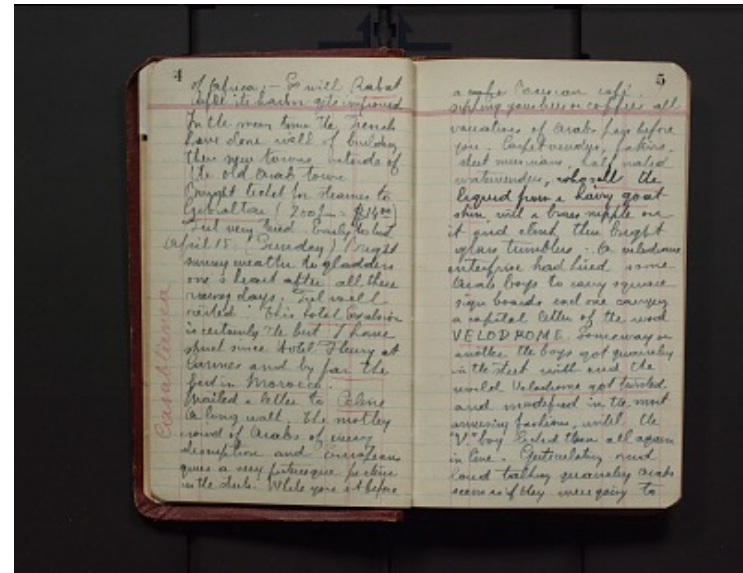 4
of Africa; – So will Rabat
until its harbor gets improved
In the mean time the French
have done well of building
their new towns outside of
the old Arab town
Bought ticket for steamer to
Gibraltar (200 f = $14.00)
Felt very tired. Early to bed
April 15. (Sunday) Bright
sunny weather to gladden
one's heart after all these
rainy days. Feel well
rested. This hotel Excelsior
is certainly the best I have
struck since Hotel Fleury at
Cannes and by far the
best in Morocco.
Mailed a letter to
A long walk. The motley
crowd of Arabs of every
description and Europeans
gives a very picturesque picture
in the streets. While you sit before
Casablanca
5
a cafe
sipping your beer or coffee all
variations of Arabs pass before
you. Carpet vendors, fakirs,
street musicians, half naked
watervendors, who sell the
liquid from a hairy goat
skin with a brass nipple on
it and clink their bright
glass tumblers. A velodrome
enterprise had hired some
Arab boys to carry square
sign boards each one carrying
a capital letter of the word
VELODROME. Someway or
another the boys got
in the street and the
world Velodrome got twisted
and in the most
amusing fashions, until the
"V" boy them all again
in line. Gesticulating and
loud talking Arabs
seem as if they were going to